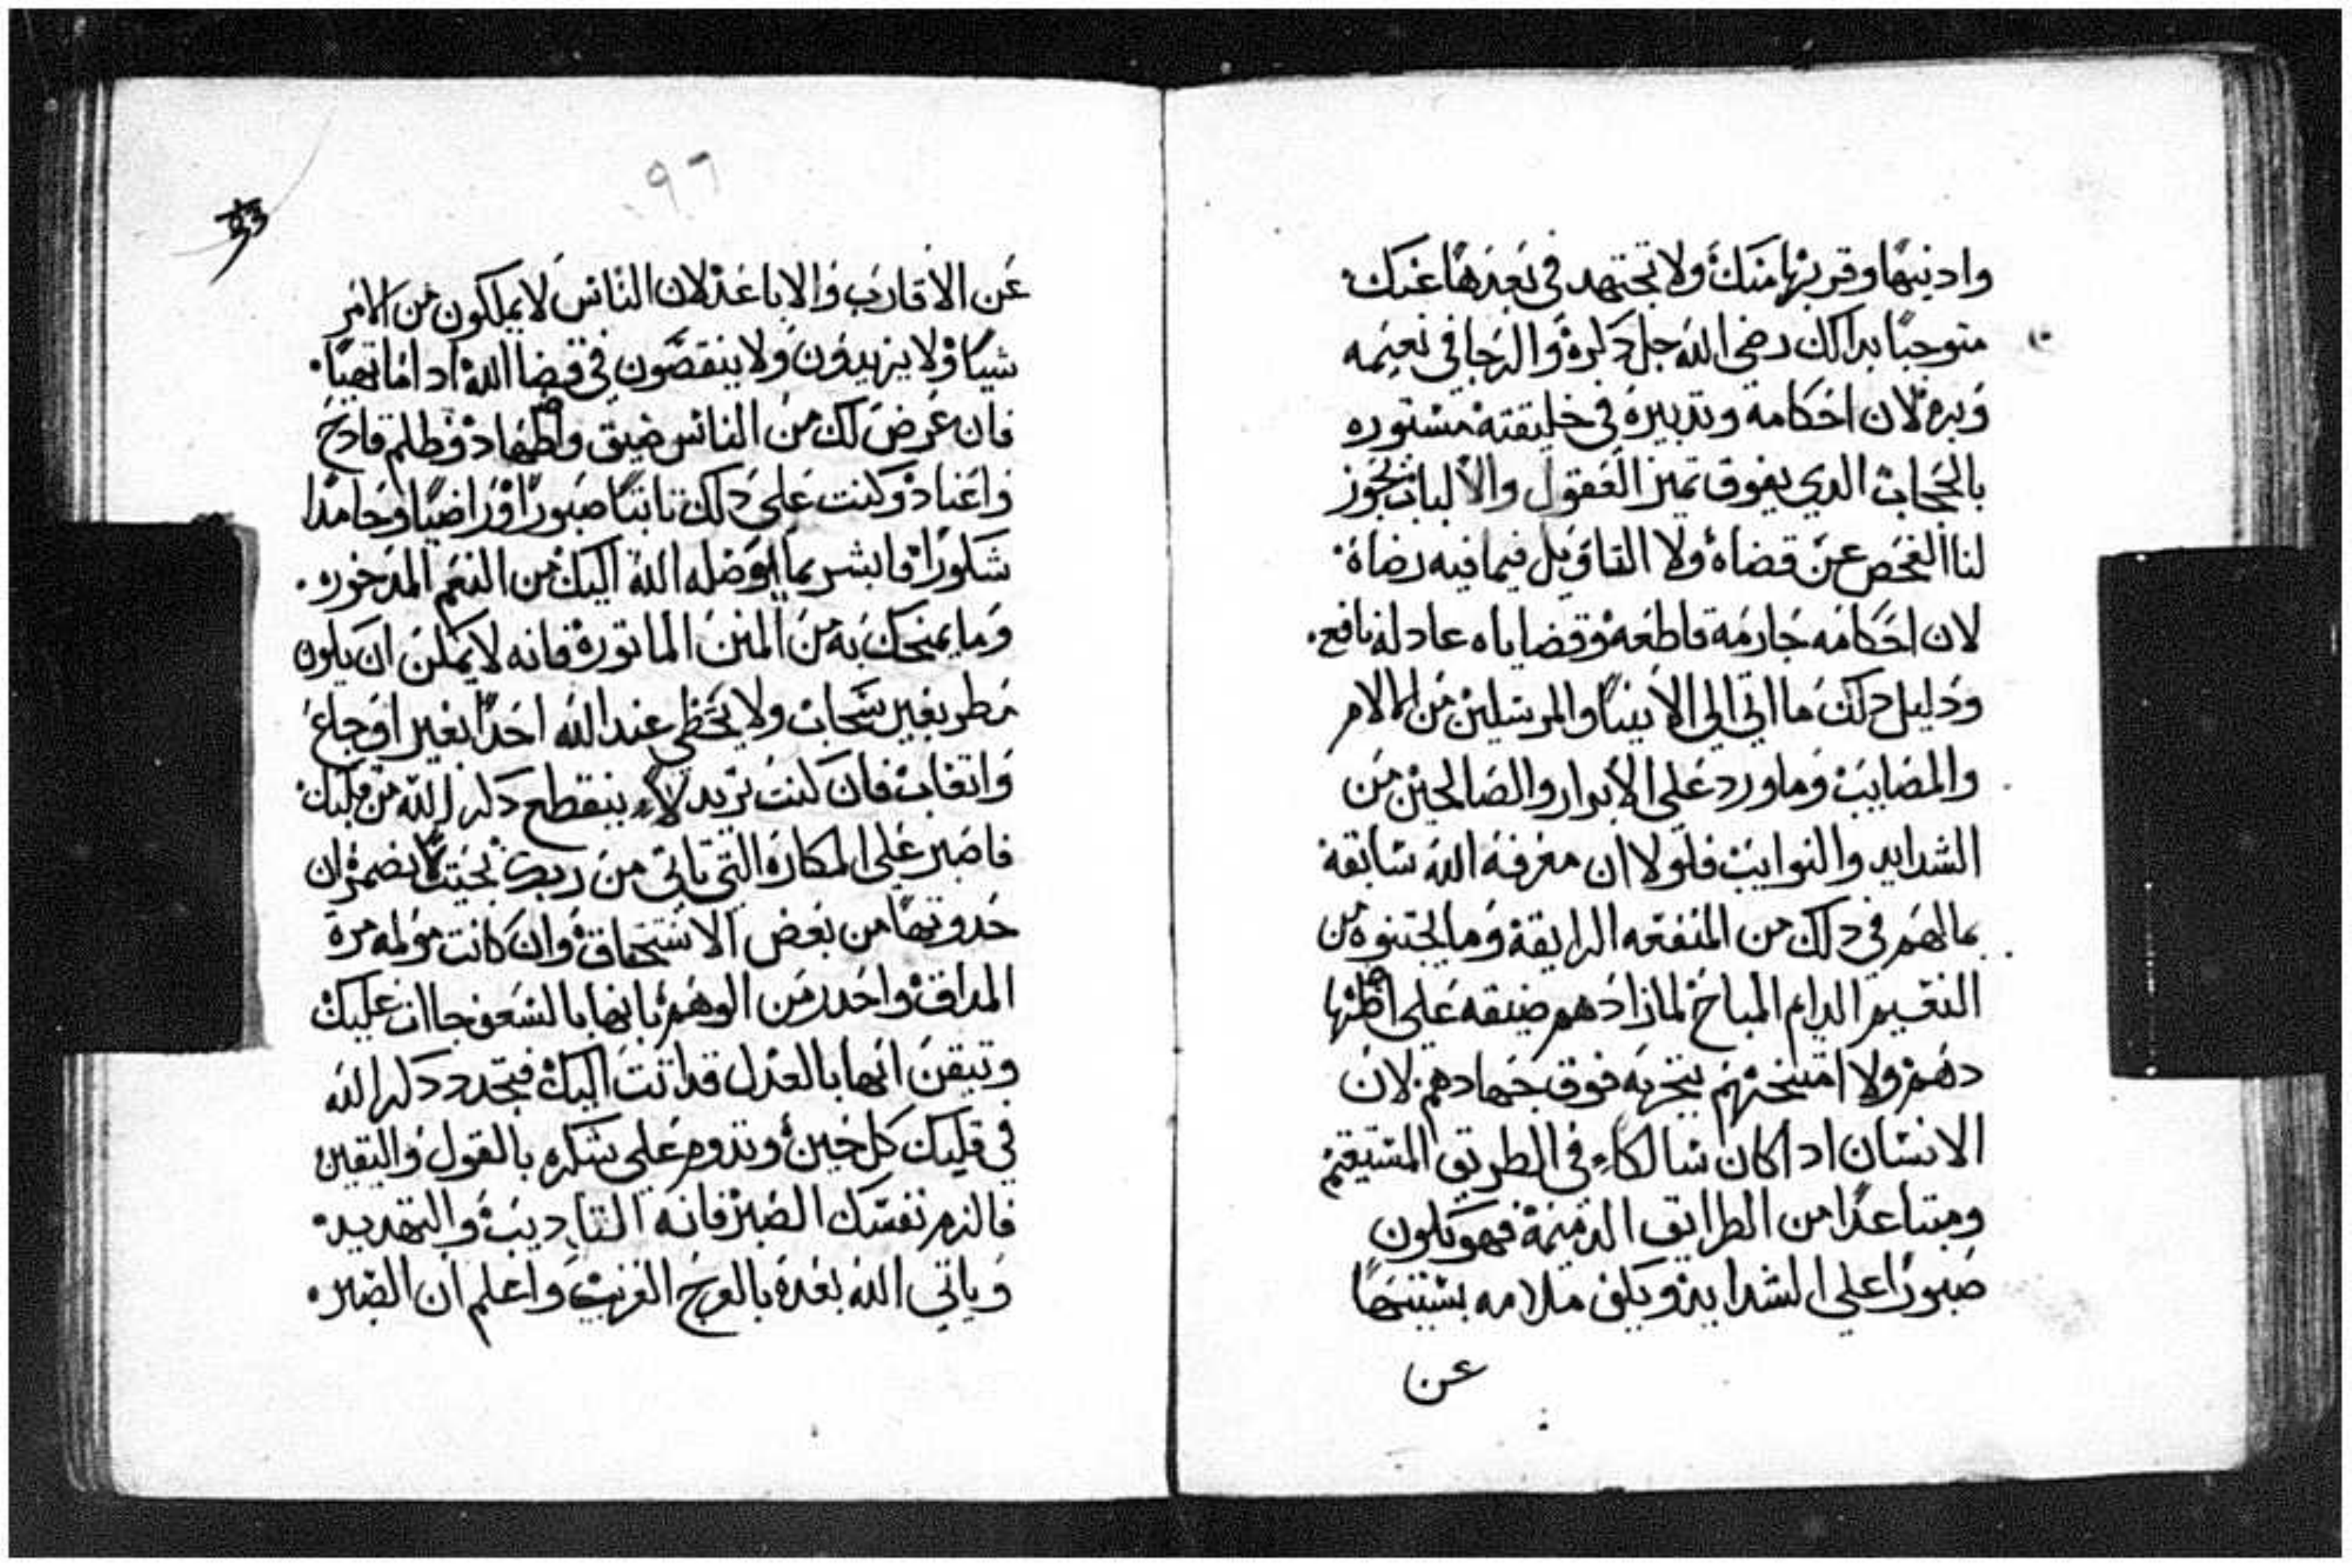 وادنيها وقربها منك ولا تجتهد في بعدها عنك
متوجبًا بدالك رضى الله جل دكره والرجا في نعيمه
وبره لان احكامه وتدبيره في خليقته مستوره
بالحجاب الدي يفوق تميز العقول والالباب
لنا الفحص عن قضاه ولا التاويل فيما فيه رضاه
لان احكامه جازمه قاطعه وقضاياه عادله نافع
ودليل دلك ما اتي الي الانبيا والمرسلين من الالام
والمصايب وما ورد علي الابرار والصالحين من
الشدايد والنوايب فلولا ان معرفة الله سابقة
بما لهم في دلك من المنفعه الرايقة وما يجتنوه من
النعيم الدايم المباح لما زادهم ضيقه علي
دهم ولا امتحنهم بتجربه فوق جهادهم لان
الانسان ادا كان سالكاء في الطريق المستيقم
ومتباعدًا من الطرايق الدميمة فهو يكون
صبورًا علي الشدايد ويكف ملامه بسببها
عن
٩٦
عن الاقارب والاباعد لان الناس لا يملكون من الامر
شيًا ولا يزيدون ولا ينقصون في قضا الله ادا ما تهيا
فان عرض لك من الناس ضيق واضطهاد وظلم فادح
واعناد وكنت علي دلك تابتًا صبورًا وراضيًا وحامدا
شكورًا فابشر بما يوصله الله اليك من النعم المدخوره
وما يمنحك به من المنن الماتورة فانه لا يمكن ان يكون
مطر بغير سحاب ولا يحظي عند الله احدًا بغير اوجاع
واتعاب فان كنت تريد لاء ينقطع دكر الله من قلبك
فاصبر علي المكاره التي تاتي من بحيت لا تضمر ان
حدوتها من بعض الاستحقاق وان كانت مولمه مرة
المداق واحدر من الوهم بانها بالسعف جاات عليك
وتيقن انها بالعدل قد اتت اليك فيتجدد دكر الله
في قلبك كل حين وتدوم علي شكره بالقول واليقين
فالزم نفسك الصبر فانه التاديب والتهديد
وياتي الله بعده بالفرج القريب واعلم ان الصبر